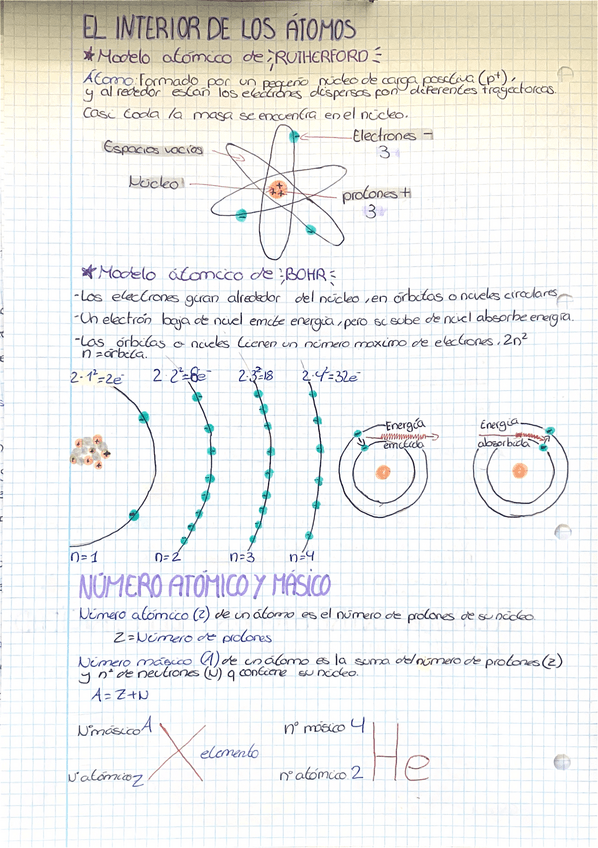 EL INTERIOR DE LOS ÁTOMOS
* Modelo atómico de RUTHERFORD
Átomo: formado por un pequeño núcleo de carga positiva (p+),
y alrededor están los electrones dispersos por diferentes trayectorias.
Casi toda la masa se encuentra en el núcleo.
Espacios vacíos
Electrones -
3
Núcleo
protones +
3
* Modelo átomico de BOHR
-Los electrones giran alrededor del núcleo, en órbitas o niveles circulares
-Un electrón baja de nivel emite energía, pero si sube de nivel absorbe energía.
-Las órbitas o niveles tienen un número maximo de electrones. 2n²
n = órbita.
2·1²=2e⁻ 2·2²=8e⁻ 2·3²=18 2·4²=32e⁻
Energía
emitida
Energía
absorbida
n=1 n=2 n=3 n=4
NÚMERO ATÓMICO Y MÁSICO
Número atómico (Z) de un átomo es el número de protones de su núcleo
Z = Número de protones
Número másico (A) de un átomo es la suma del número de protones (Z)
y nº de neutrones (N) q contiene su núcleo.
A = Z + N
Nº másico A
X
elemento
Nº atómico Z
nº másico 4
He
nº atómico 2